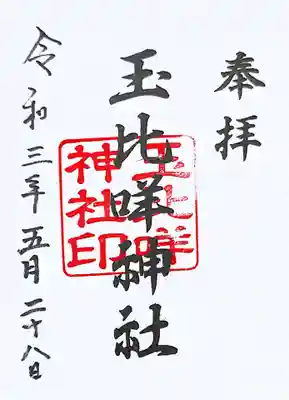 奉拝
玉比咩神社
玉比咩神社印
令和三年五月二十八日